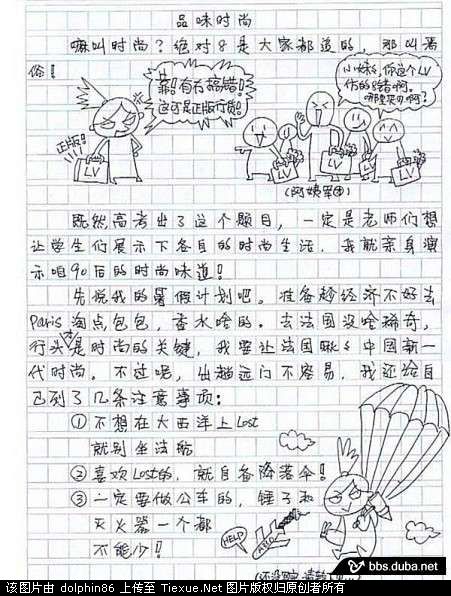 品味时尚
嘛叫时尚？绝对8是大家都道的，那叫
俗！
靠！有冇搞错！
这可是正版行货！
小妹，你这个LV
仿的8错啊。
哪里买的啊？
正版！
LV
LV
LV
LV
LV
(阿姨军团)
既然高考出了这个题目，一定是老师们想
让学生们展示下各自的时尚生活，我就亲身演
示咱90后的时尚味道！
先说我的暑假计划吧。准备趁经济不好去
Paris淘点包包，香水啥的。去法国没啥稀奇，
行头才是时尚的关键，我要让法国瞅瞅中国新一
代时尚。不过呢，出趟远门不容易，我还给自
己列了几条注意事项：
①不想在大西洋上Lost
就别坐法航
②喜欢Lost的，就自备降落伞！
③一定要做公车的，锤子和
灭火器一个都
不能少！
HELP
(还没写完，请
bbs.duba.net
该图片由 dolphin86 上传至 Tiexue.Net 图片版权归原创者所有